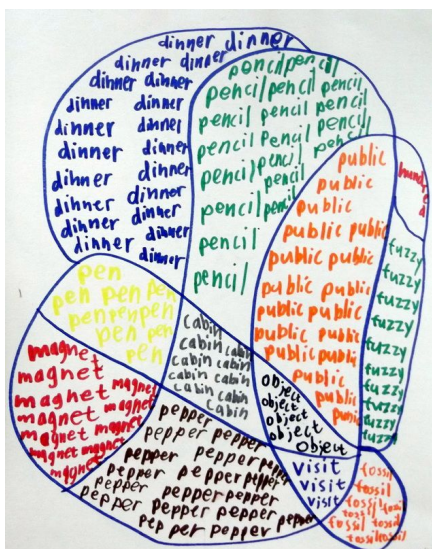 dinner dinner
dinner dinner
dinner dinner
dinner dinner
dinner dinner
dinner dinner
dihner dinner
dinner dinner
dinner dinner
dinner dinner
dinner dinner
pencil pencil
pencil pencil pencil
pencil pencil pencil
pencil pencil pencil
pencil pencil pencil
pencil pencil
pencil pencil
pencil
pencil
public
public
public
public public
public public
public public
public public
public public
public public
public
public
hundred
fuzzy
fuzzy
fuzzy
fuzzy
fuzzy
fuzzy
fuzzy
fuzzy
fuzzy
pen
pen pen pen
pen pen pen
pen pen
pen
cabin
cabin cabin
cabin cabin
cabin cabin
cabin cabin
cabin
object
object
object
object
object
magnet
magnet
magnet magnet
magnet magnet
magnet magnet
magnet magnet
magnet
pepper
pepper pepper
pepper pepper pepper
pepper pepper pepper
pepper pepper pepper
pepper pepper pepper
pepper pepper pepper
visit
visit
visit
fossil
fossil
fossil fossil
fossil fossil
fossil fossil
fossil fossil